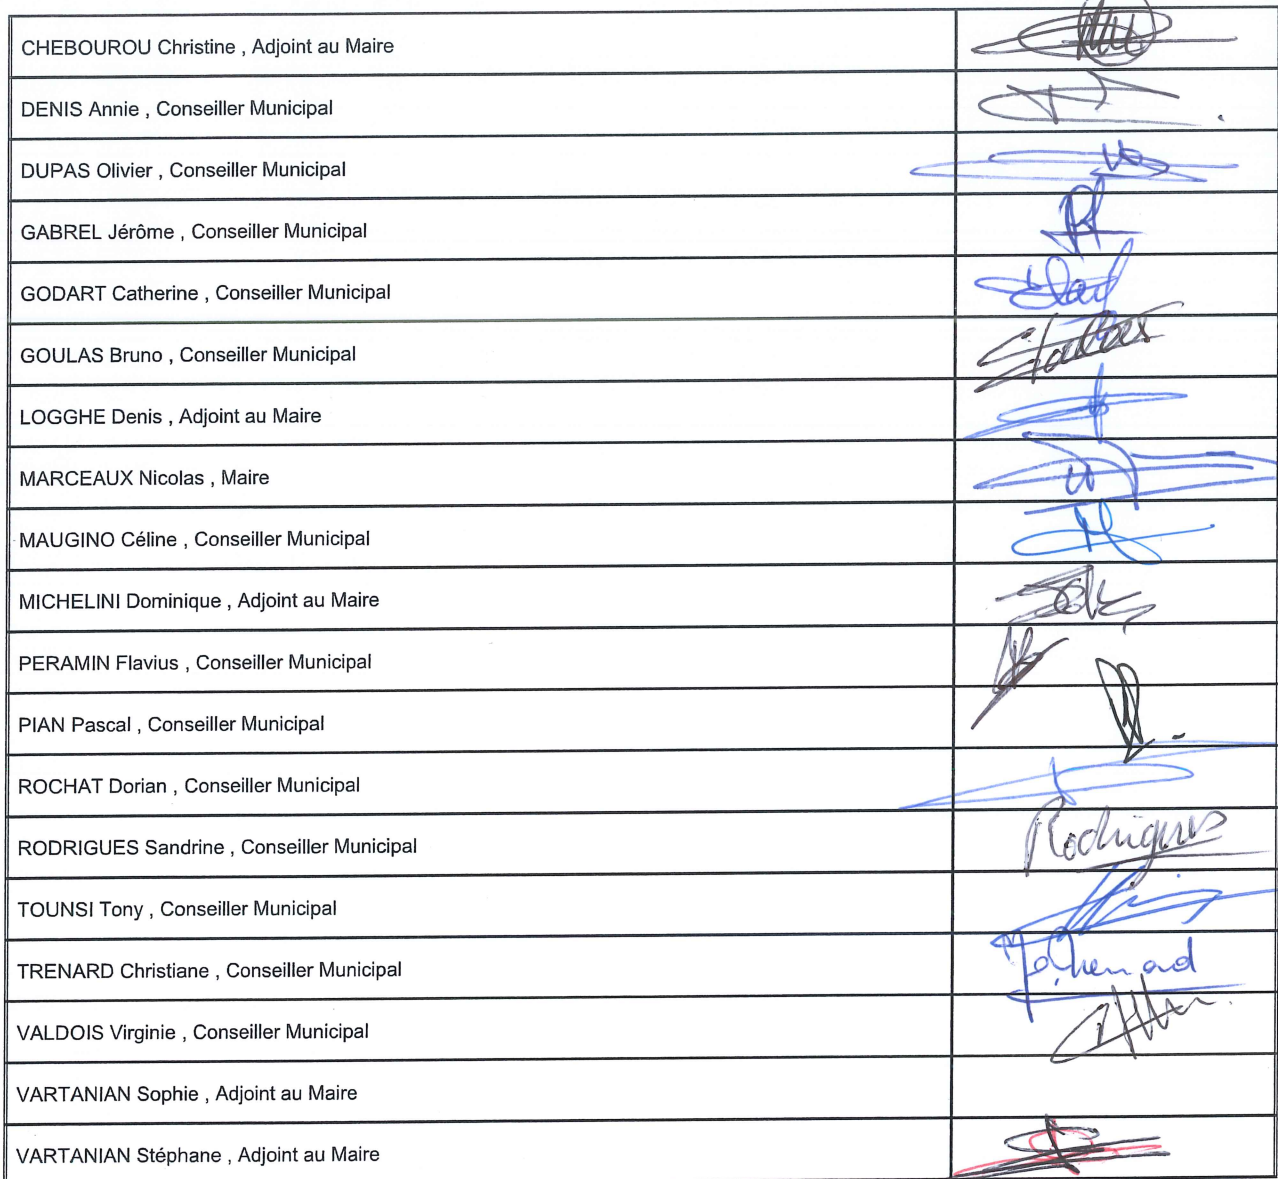 CHEBOUROU Christine , Adjoint au Maire
DENIS Annie , Conseiller Municipal
DUPAS Olivier , Conseiller Municipal
GABREL Jérôme , Conseiller Municipal
GODART Catherine , Conseiller Municipal
GOULAS Bruno , Conseiller Municipal
LOGGHE Denis , Adjoint au Maire
MARCEAUX Nicolas , Maire
MAUGINO Céline , Conseiller Municipal
MICHELINI Dominique , Adjoint au Maire
PERAMIN Flavius , Conseiller Municipal
PIAN Pascal , Conseiller Municipal
ROCHAT Dorian , Conseiller Municipal
RODRIGUES Sandrine , Conseiller Municipal Rodrigues
TOUNSI Tony , Conseiller Municipal
TRENARD Christiane , Conseiller Municipal
VALDOIS Virginie , Conseiller Municipal
VARTANIAN Sophie , Adjoint au Maire
VARTANIAN Stéphane , Adjoint au Maire